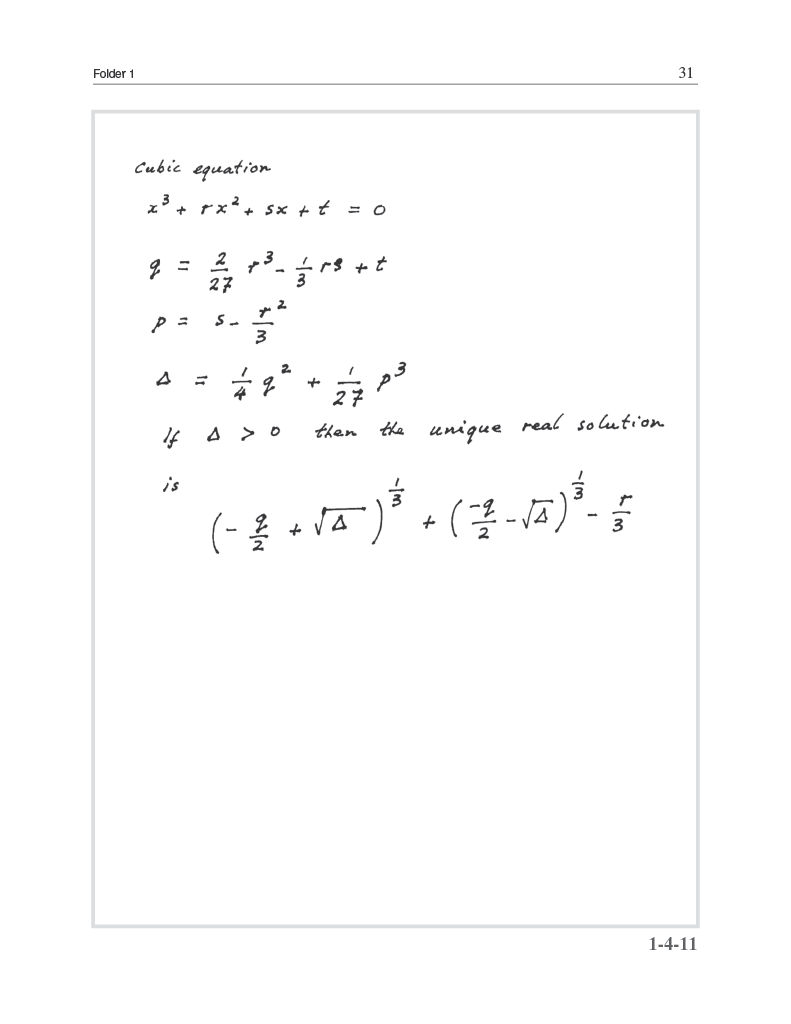 Folder 1 31
Cubic equation
x³ + rx² + sx + t = 0
q = 2/27 r³ - 1/3 rs + t
p = s - r²/3
Δ = 1/4 q² + 1/27 p³
If Δ > 0 then the unique real solution
is
(- q/2 + √Δ)^(1/3) + (-q/2 - √Δ)^(1/3) - r/3
1-4-11